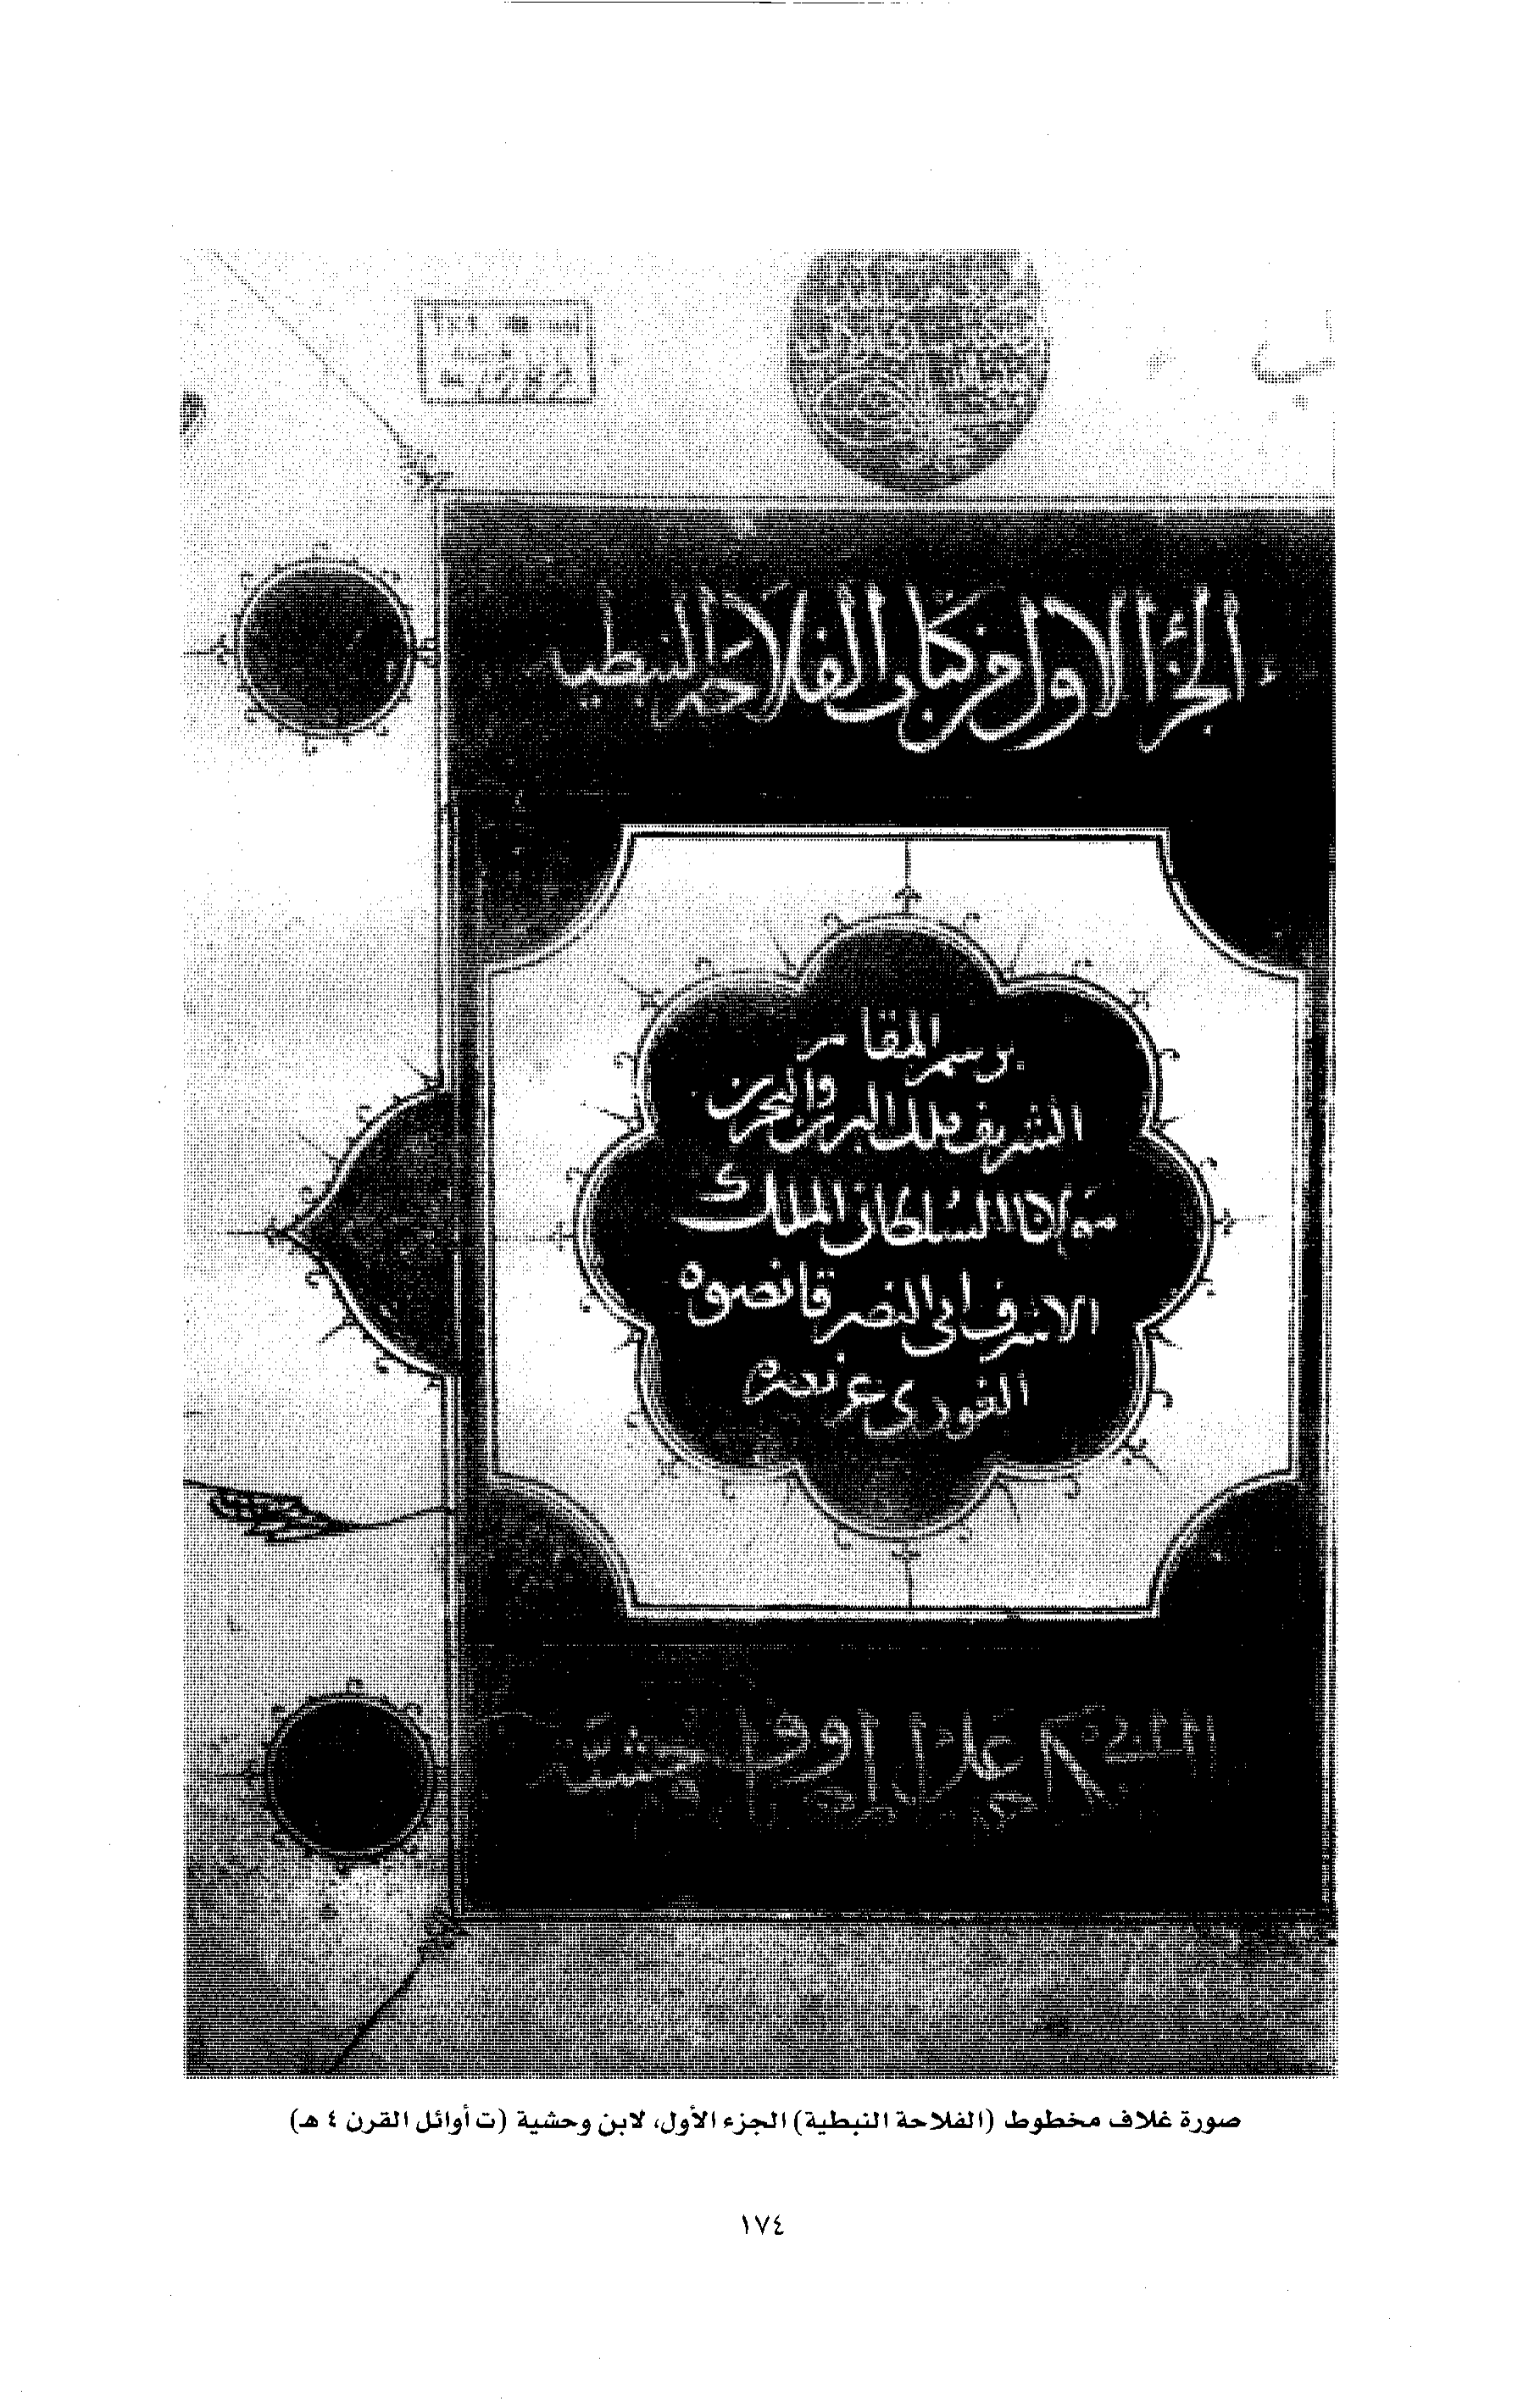 الجزء الاول من كتاب الفلاحة النبطيه
برسم المقام
الشريف ملك البرين والبحرين
مولانا السلطان الملك
الاشرف ابى النصر قانصوه
الغورى عز نصره
صورة غلاف مخطوط (الفلاحة النبطية) الجزء الأول، لابن وحشية (ت أوائل القرن ٤ هـ)
١٧٤